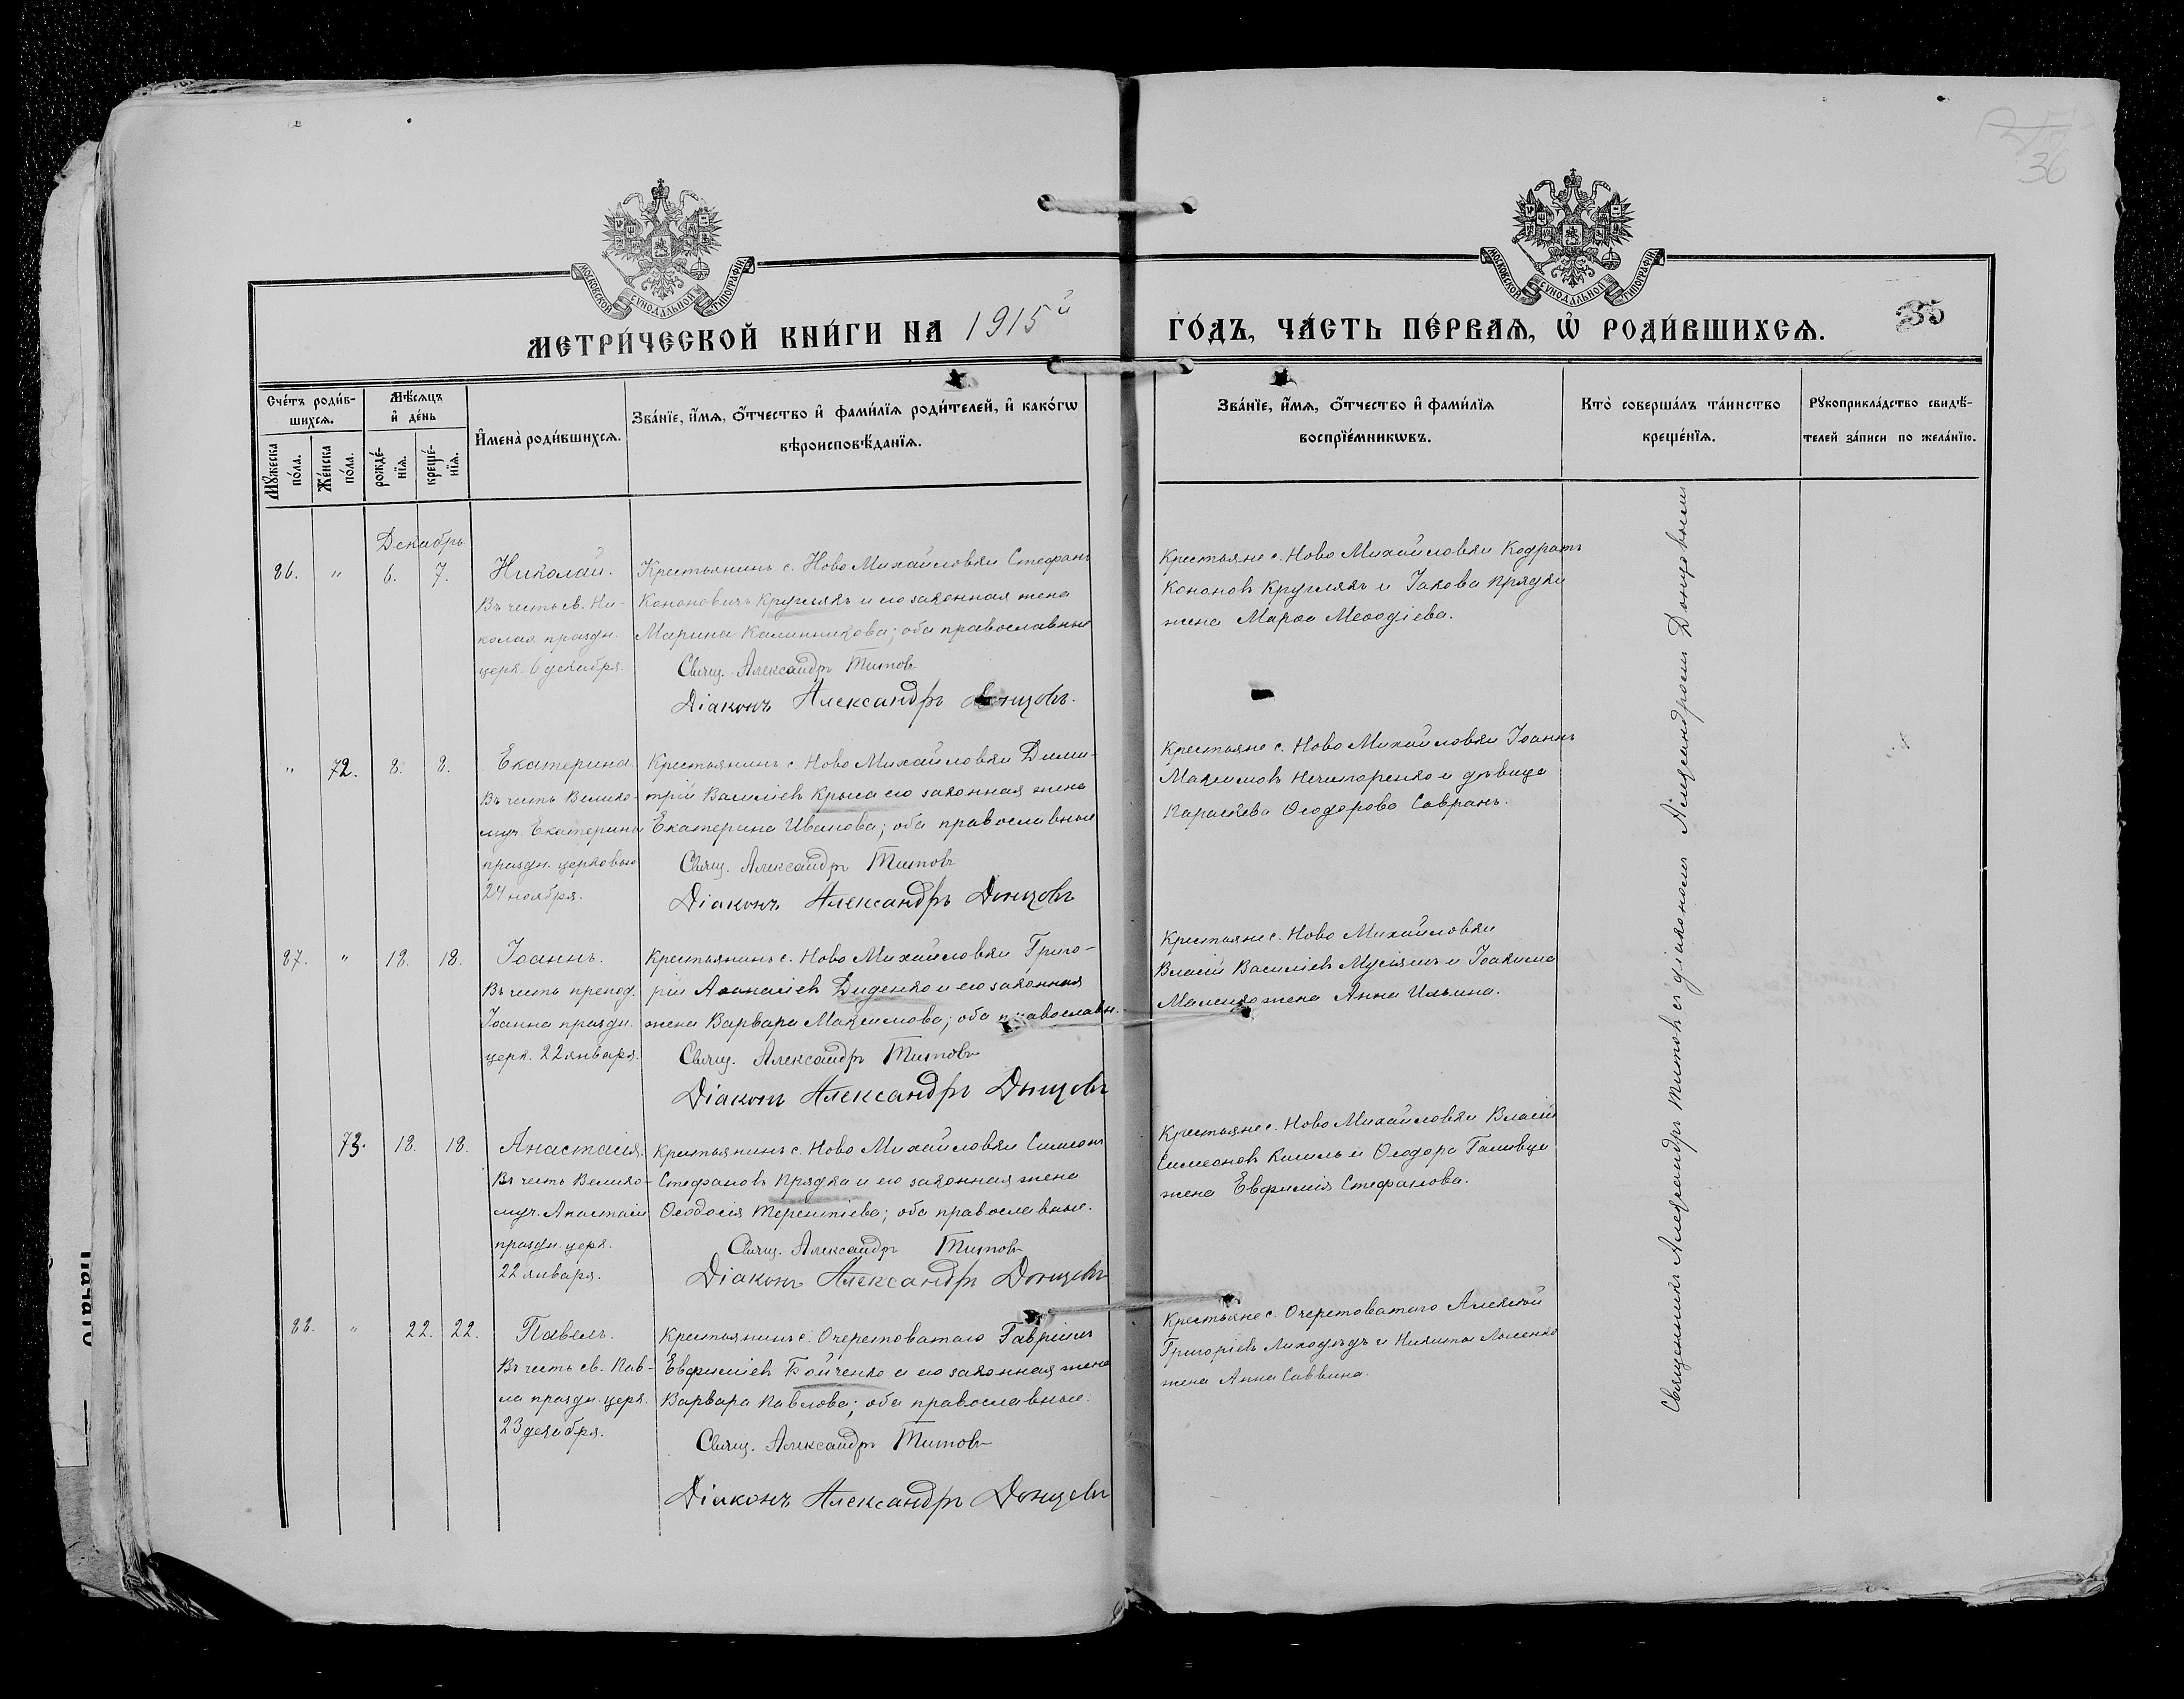 36
МОСКОВСКОЙ СѴНОДАЛЬНОЙ ТИПОГРАФІИ
МОСКОВСКОЙ СѴНОДАЛЬНОЙ ТИПОГРАФІИ
МЕТРИ́ЧЕСКОЙ КНИ́ГИ НА 1915й
ГО́ДЪ, ЧА́СТЬ ПЕ́РВАѦ, Ѡ҆ РОДИ́ВШИХСѦ.
35
Сче́тъ роди́в-
шихсѧ.
Мꙋ́жеска по́ла.
Же́нска по́ла.
Мѣ́сѧцъ
и҆ де́нь
рожде́-
нїѧ.
креще́-
нїѧ.
И҆мена̀ роди́вшихсѧ.
Зва́нїе, и҆́мѧ, ѻ҆́тчество и҆ фами́лїѧ роди́телей, и҆ како́гѡ
вѣроисповѣ́данїѧ.
Зва́нїе, и҆́мѧ, ѻ҆́тчество и҆ фами́лїѧ
воспрїе́мникѡвъ.
Кто̀ соверша́лъ та́инство
креще́нїѧ.
Рꙋкоприкла́дство свидѣ́-
телей за́писи по жела́нїю.
Декабрь
86. " 6. 7.
Николай.
Въ честь св. Ни-
колая праздн.
церк. 6 декабря.
Крестьянинъ с. Ново Михайловки Стефанъ
Кононовичъ Круглякъ и его законная жена
Марина Калинникова; оба православные
Свящ. Александръ Титовъ
Діаконъ Александръ Донцовъ.
Крестьяне с. Ново Михайловки Кодратъ
Кононовъ Круглякъ и Іакова Прядки
жена Марѳа Меѳодіева.
" 72. 8. 8.
Екатерина.
Въ честь Велико-
муч. Екатерины
праздн. церковью
24 ноября.
Крестьянинъ с. Ново Михайловки Дими-
трій Василіевъ Крыса его законная жена
Екатерина Иванова; оба православные
Свящ. Александръ Титовъ
Діаконъ Александръ Донцовъ
Крестьяне с. Ново Михайловки Іоаннъ
Максимовъ Нечипоренко и дѣвица
Параскева Ѳеодорова Савранъ.
87. " 18. 18.
Іоаннъ.
Въ честь препод.
Іоанна праздн.
церк. 22 января.
Крестьянинъ с. Ново Михайловки Григо-
рій Аѳанасіевъ Диденко и его законная
жена Варвара Максимова; оба православн.
Свящ. Александръ Титовъ
Діаконъ Александръ Донцовъ
Крестьяне с. Ново Михайловки
Власій Василіевъ и Іоакима
жена Анна Ильина.
73. 18. 18.
Анастасія.
Въ честь Велико-
муч. Анастасіи
праздн. церк.
22 января.
Крестьянинъ с. Ново Михайловки Симеонъ
Стефановъ Прядка и его законная жена
Ѳеодосія Терентіева; оба православные.
Свящ. Александръ Титовъ
Діаконъ Александръ Донцовъ
Крестьяне с. Ново Михайловки Власій
Симеоновъ Кисиль и Ѳеодора
жена Евфимія Стефанова.
88. " 22. 22.
Павелъ.
Въ честь св. Пав-
ла праздн. церк.
23 декабря.
Крестьянинъ с. Очеретоватаго Гавріилъ
Евфиміевъ Бойченко и его законная жена
Варвара Павлова; оба православные.
Свящ. Александръ Титовъ
Діаконъ Александръ Донцовъ
Крестьяне с. Очеретоватаго Алексѣй
Григоріевъ Лиходѣдъ и Никиты Лысенко
жена Анна Саввина.
Священникъ Александръ Титовъ съ діакономъ Александромъ Донцовымъ